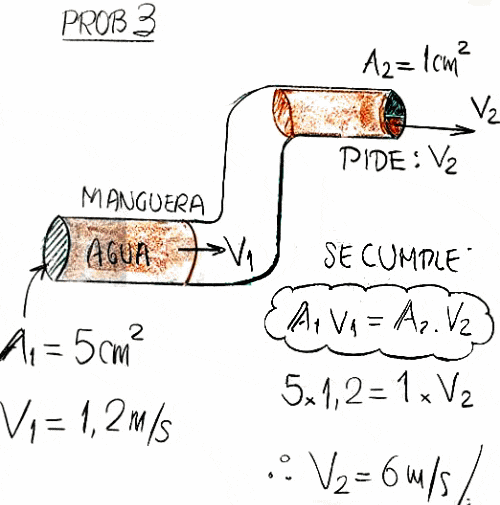 PROB 3
A₂ = 1cm²
V₂
PIDE : V₂
MANGUERA
AGUA
V₁
SE CUMPLE
A₁ V₁ = A₂ . V₂
A₁ = 5cm²
5 x 1,2 = 1 x V₂
V₁ = 1,2 m/s
∴ V₂ = 6 m/s